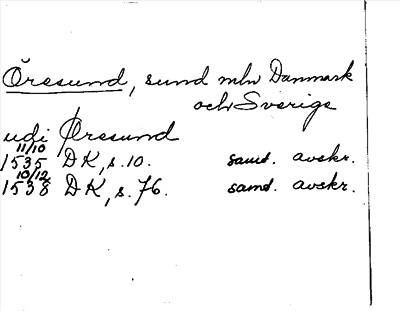 Öresund, sund mlw Danmark
och Sverige
udi Øresund
11/10
1535 DK, s. 10. samt. avskr.
10/12
1538 DK, s. 76. samt. avskr.